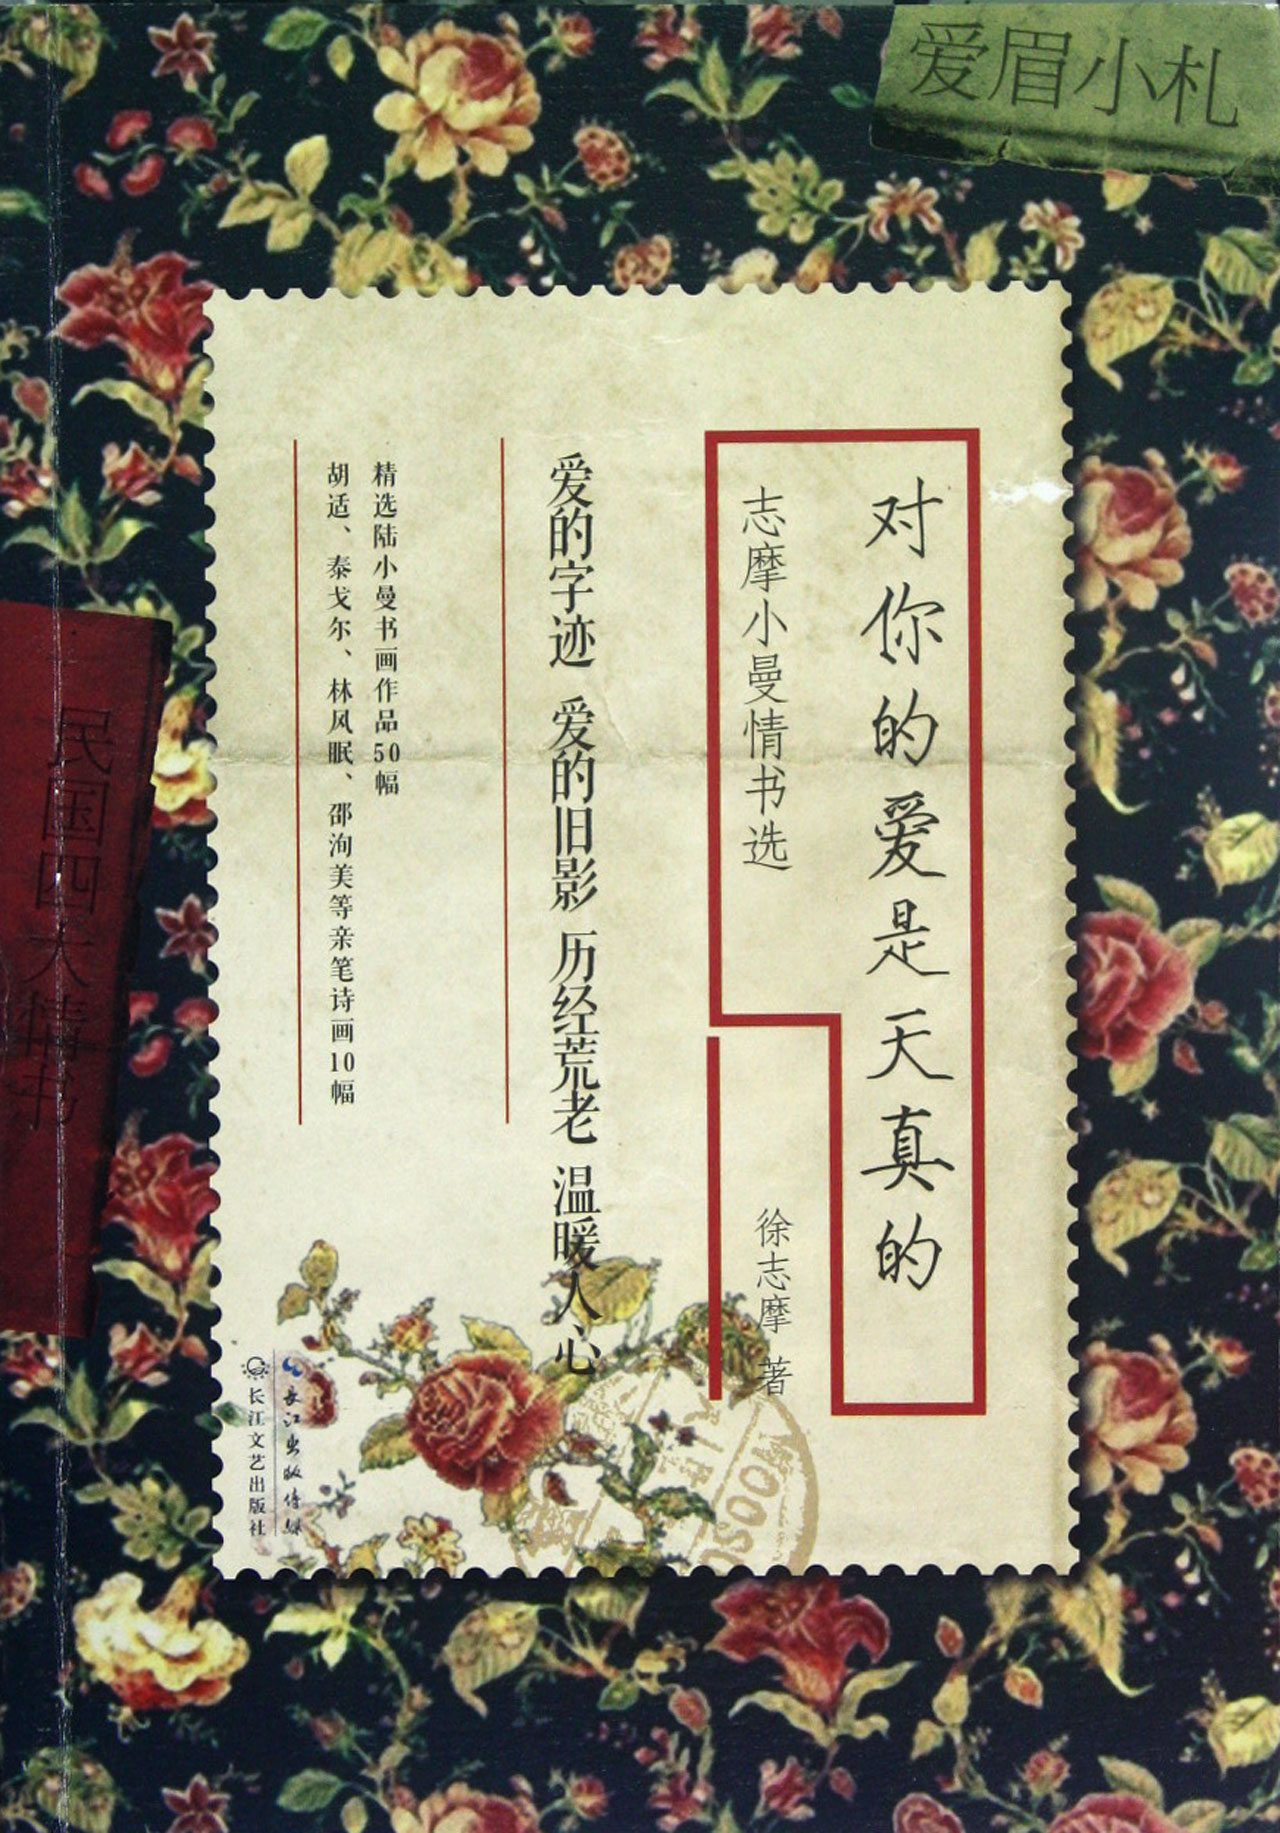 爱眉小札
对你的爱是天真的
志摩小曼情书选
徐志摩 著
爱的字迹 爱的旧影 历经荒老 温暖人心
精选陆小曼书画作品50幅
胡适、泰戈尔、林风眠、邵洵美等亲笔诗画10幅
长江出版传媒
长江文艺出版社
民国四大情书